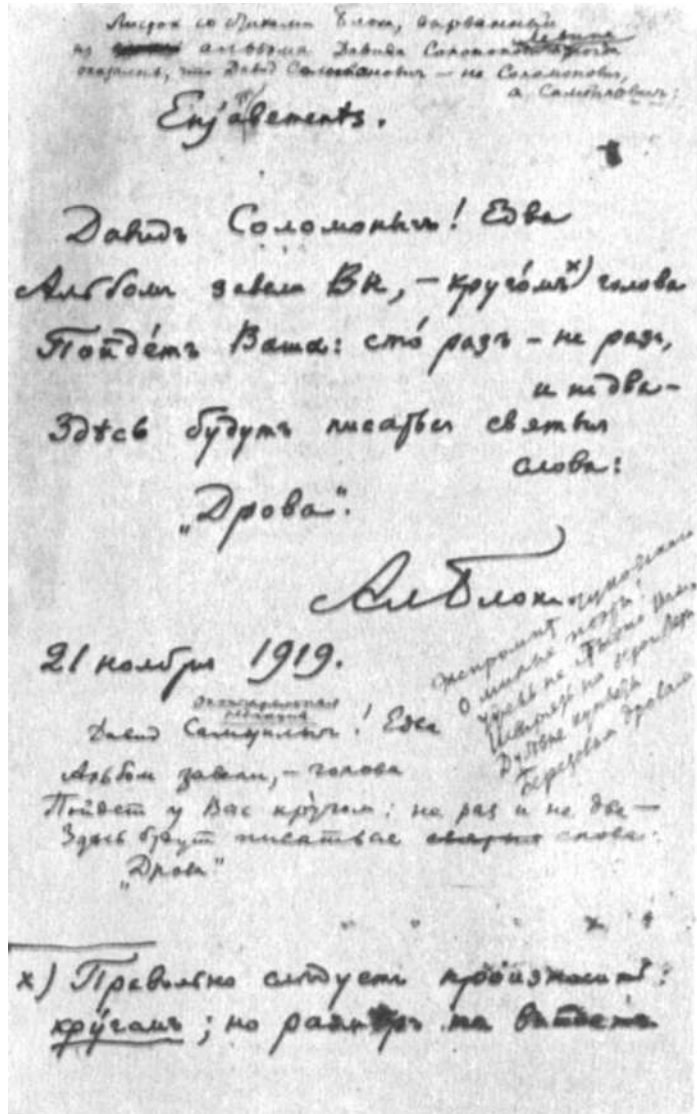 Листок со стихами Блока, вырванный
из альбома Давида Соломоновича Левина
оказалось, что Давид Соломонович — не Соломонович,
а Самойлович:
Enjambements.
Давидъ Соломонычъ! Едва
Альбомъ завели Вы, — круго́мъ х) голова
Пойде́тъ Ваша: сто́ разъ — не разъ,
и не два —
Здѣсь будутъ писаться святыя
слова:
„Дрова“.
Ал Блок
21 ноября 1919.
экспромт Чуковского
О милые поэты!
Ужель не стыдно Вам
Березовым дровам
окончательная
редакция
Давид Самуилыч! Едва
Альбом завели, — голова
Пойдет у Вас кругом: не раз и не два —
Здесь будут писаться святыя слова:
„Дрова“
х) Правильно слѣдуетъ произносить:
кру́гомъ; но размѣръ не